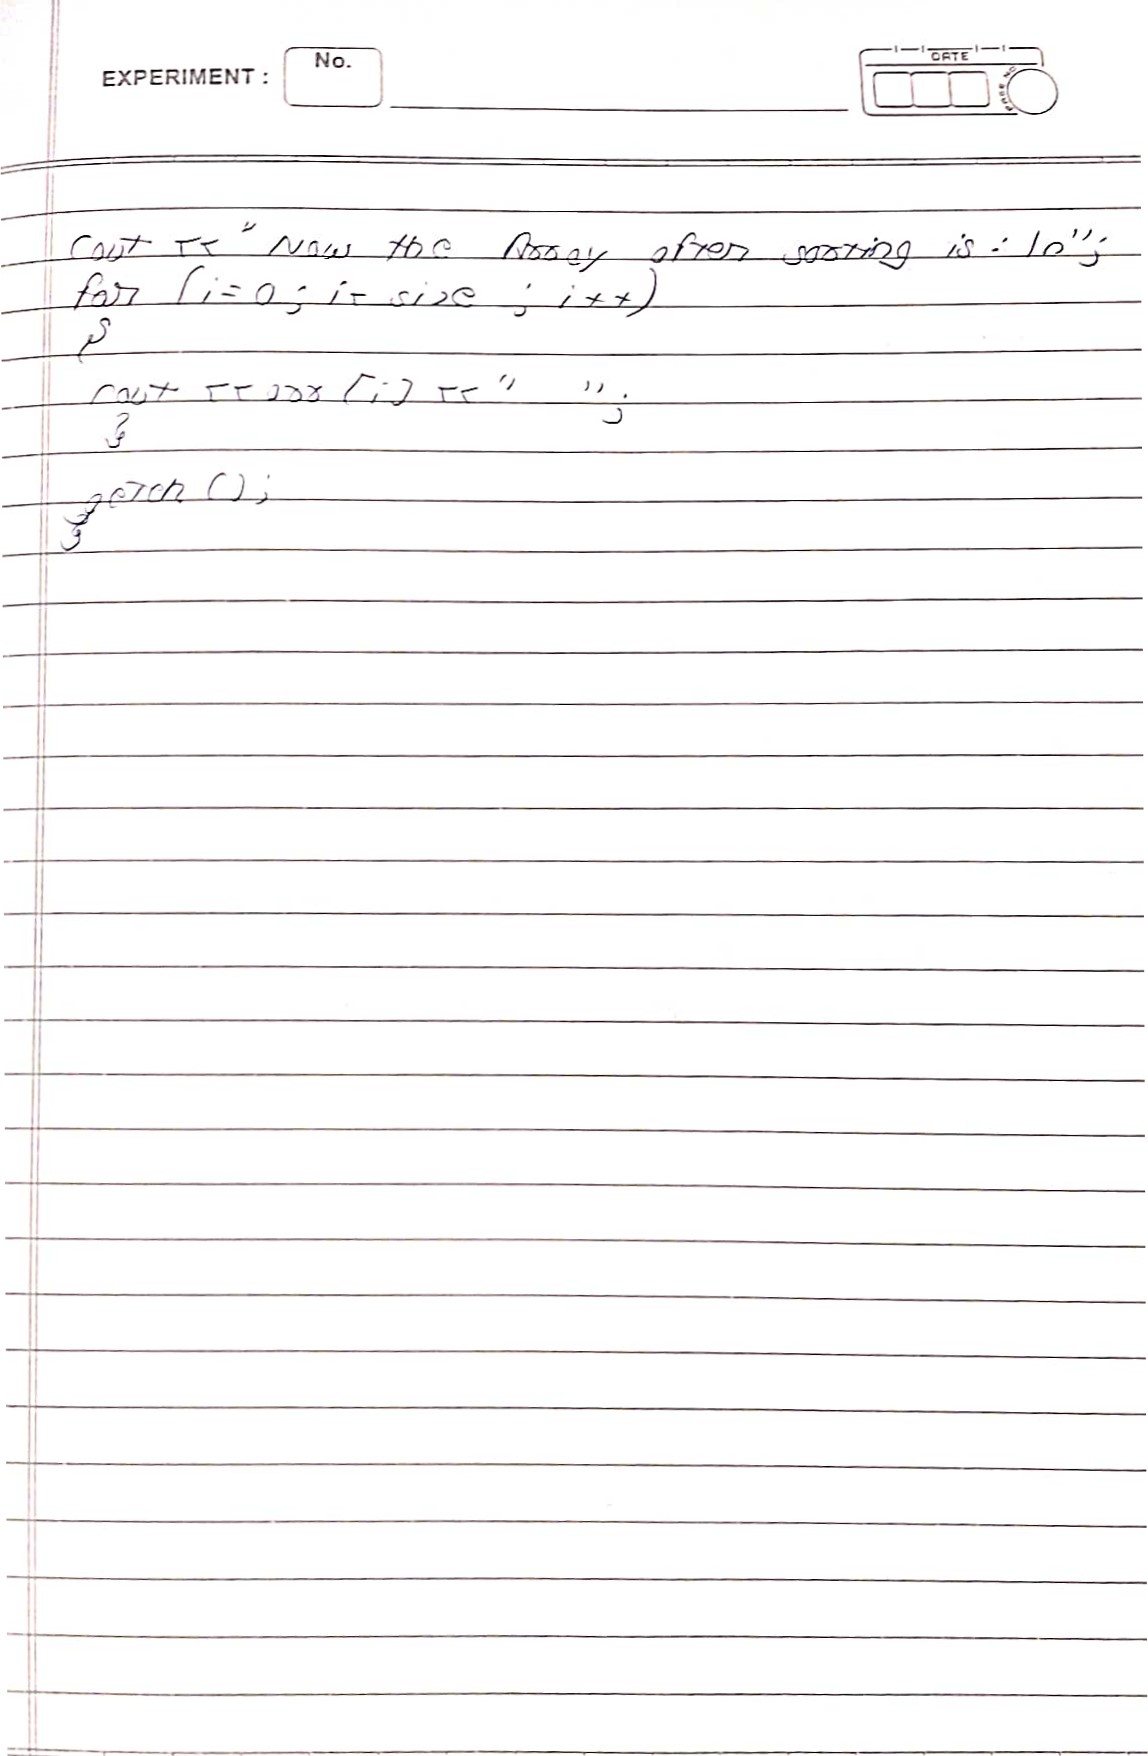 EXPERIMENT :
No.
DATE
PAGE NO.
cout << "Now the Array after sorting is : \n";
for (i=0; i< size ; i++)
{
cout << arr[i] << "   ";
}
getch();
}